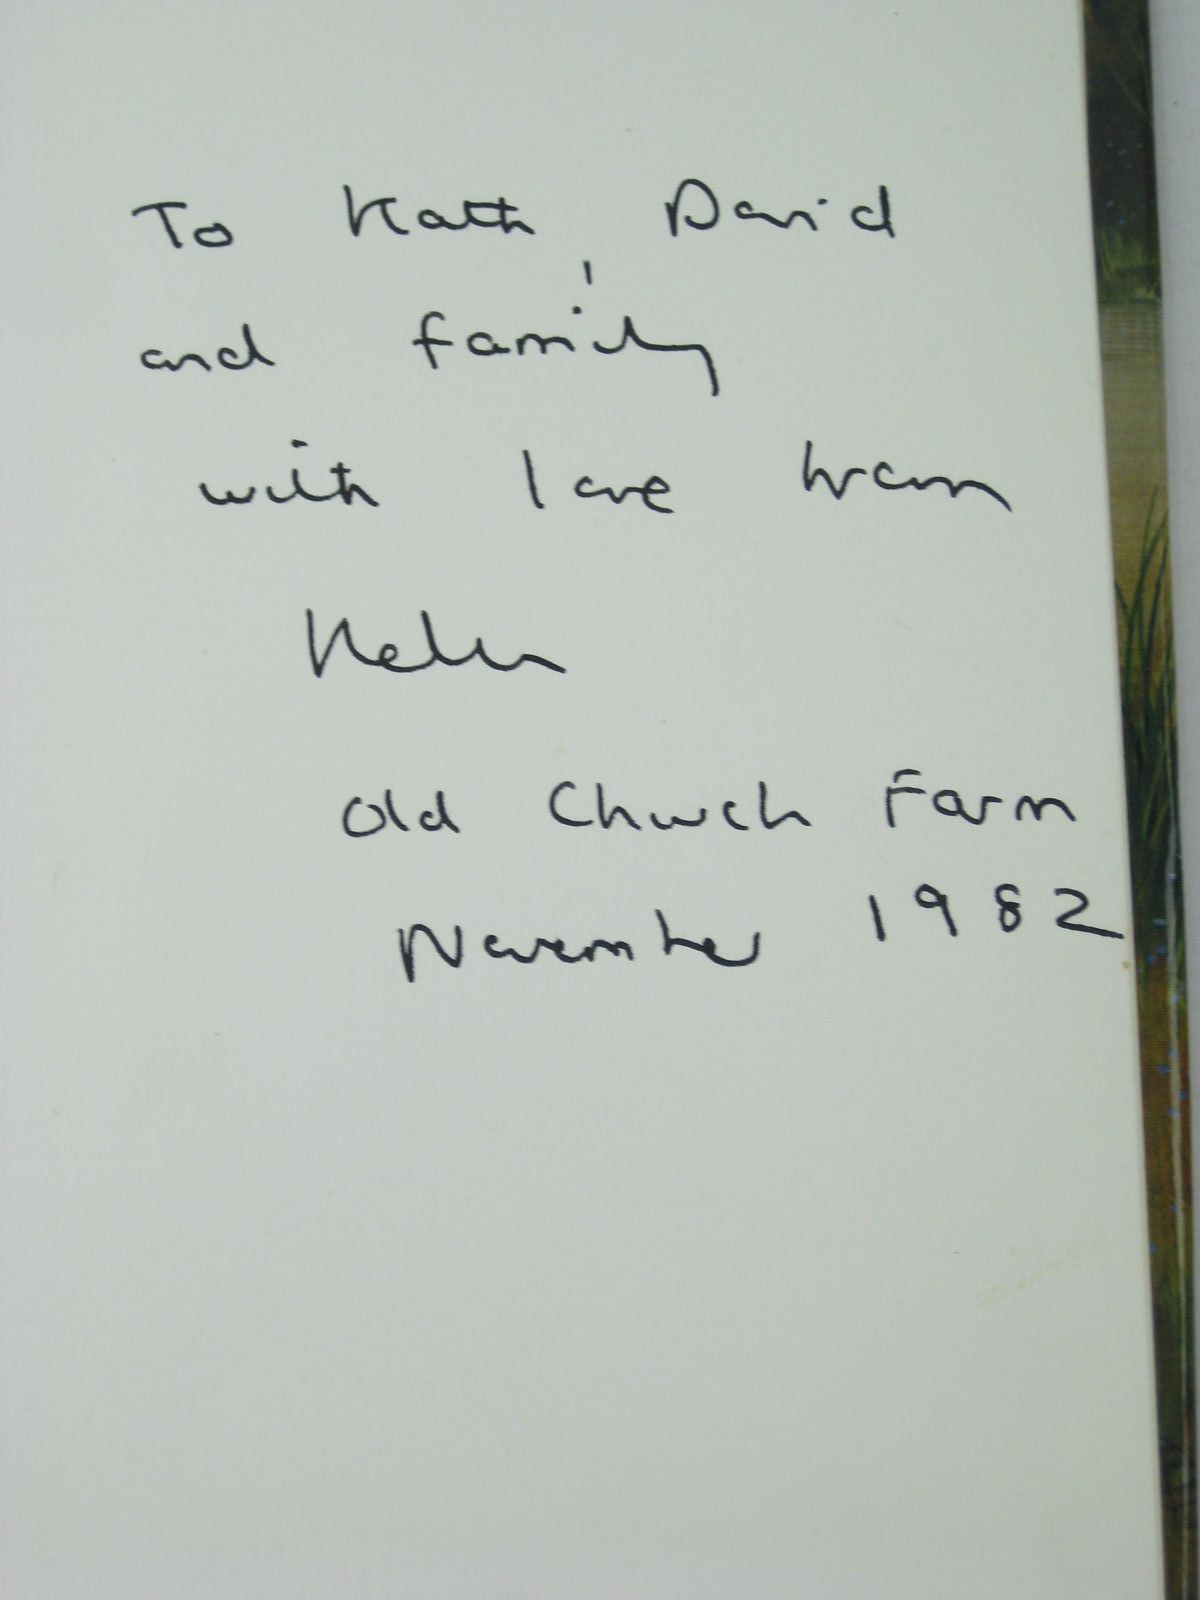 To Kath, David
and family
with love from
Helen
Old Church Farm
November 1982